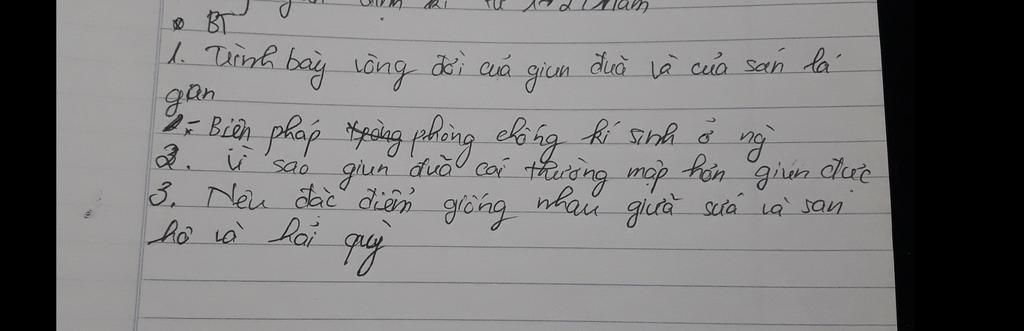 từ 1 → 2 / năm
* BT
1. Trình bày vòng đời của giun đuã và của sán lá
gan
- Biện pháp phòng chống kí sinh ở ng
2. Vì sao giun đuã cái thường mập hơn giun đực
3. Nêu đặc điểm giống nhau giữa sứa và san
hô và hải quỳ